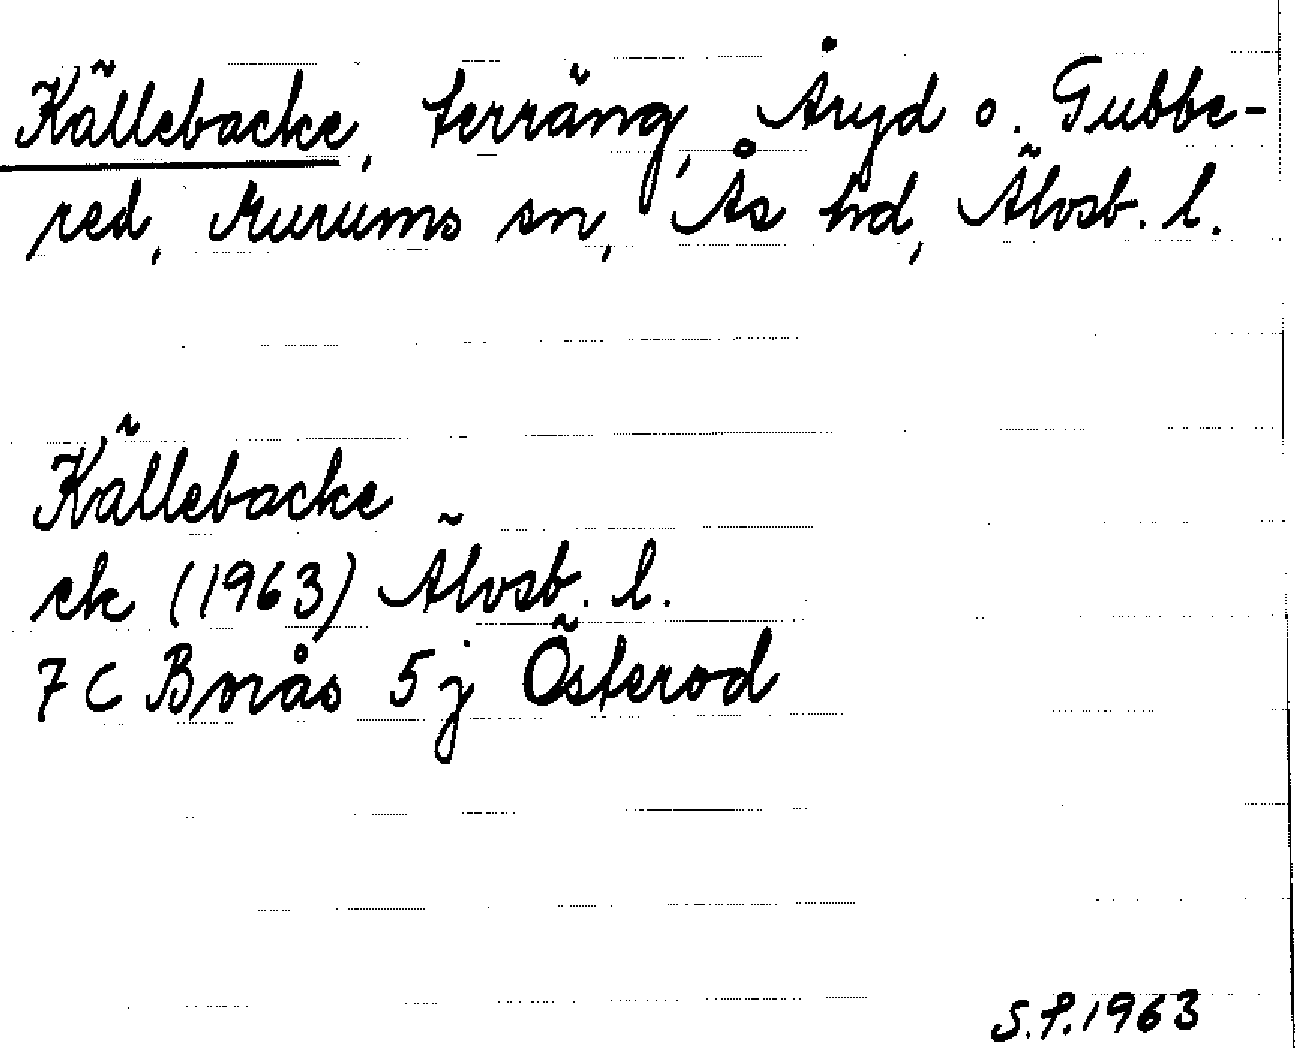 Källebacke, terräng, Åryd o. Gubbe-
red, Murums sn, Ås hd, Älvsb. l.
Källebacke
ek (1963) Älvsb. l.
7 C Borås 5 j Österod
S.F. 1963